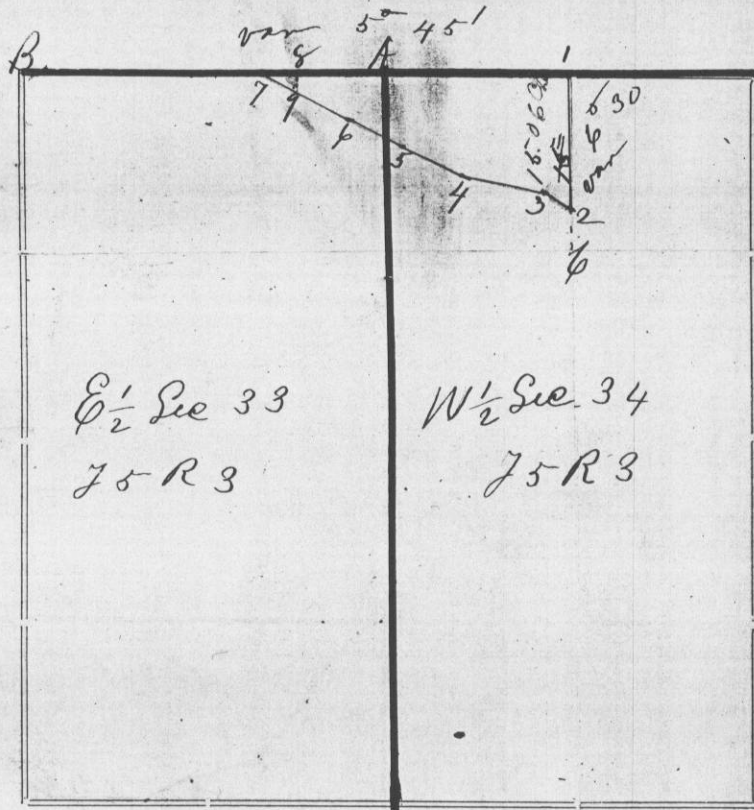 var 5° 45'
B 8 A 1
7 9 6 5 4 3 2
630
var
E ½ Sec 33
T 5 R 3
W ½ Sec. 34
T 5 R 3